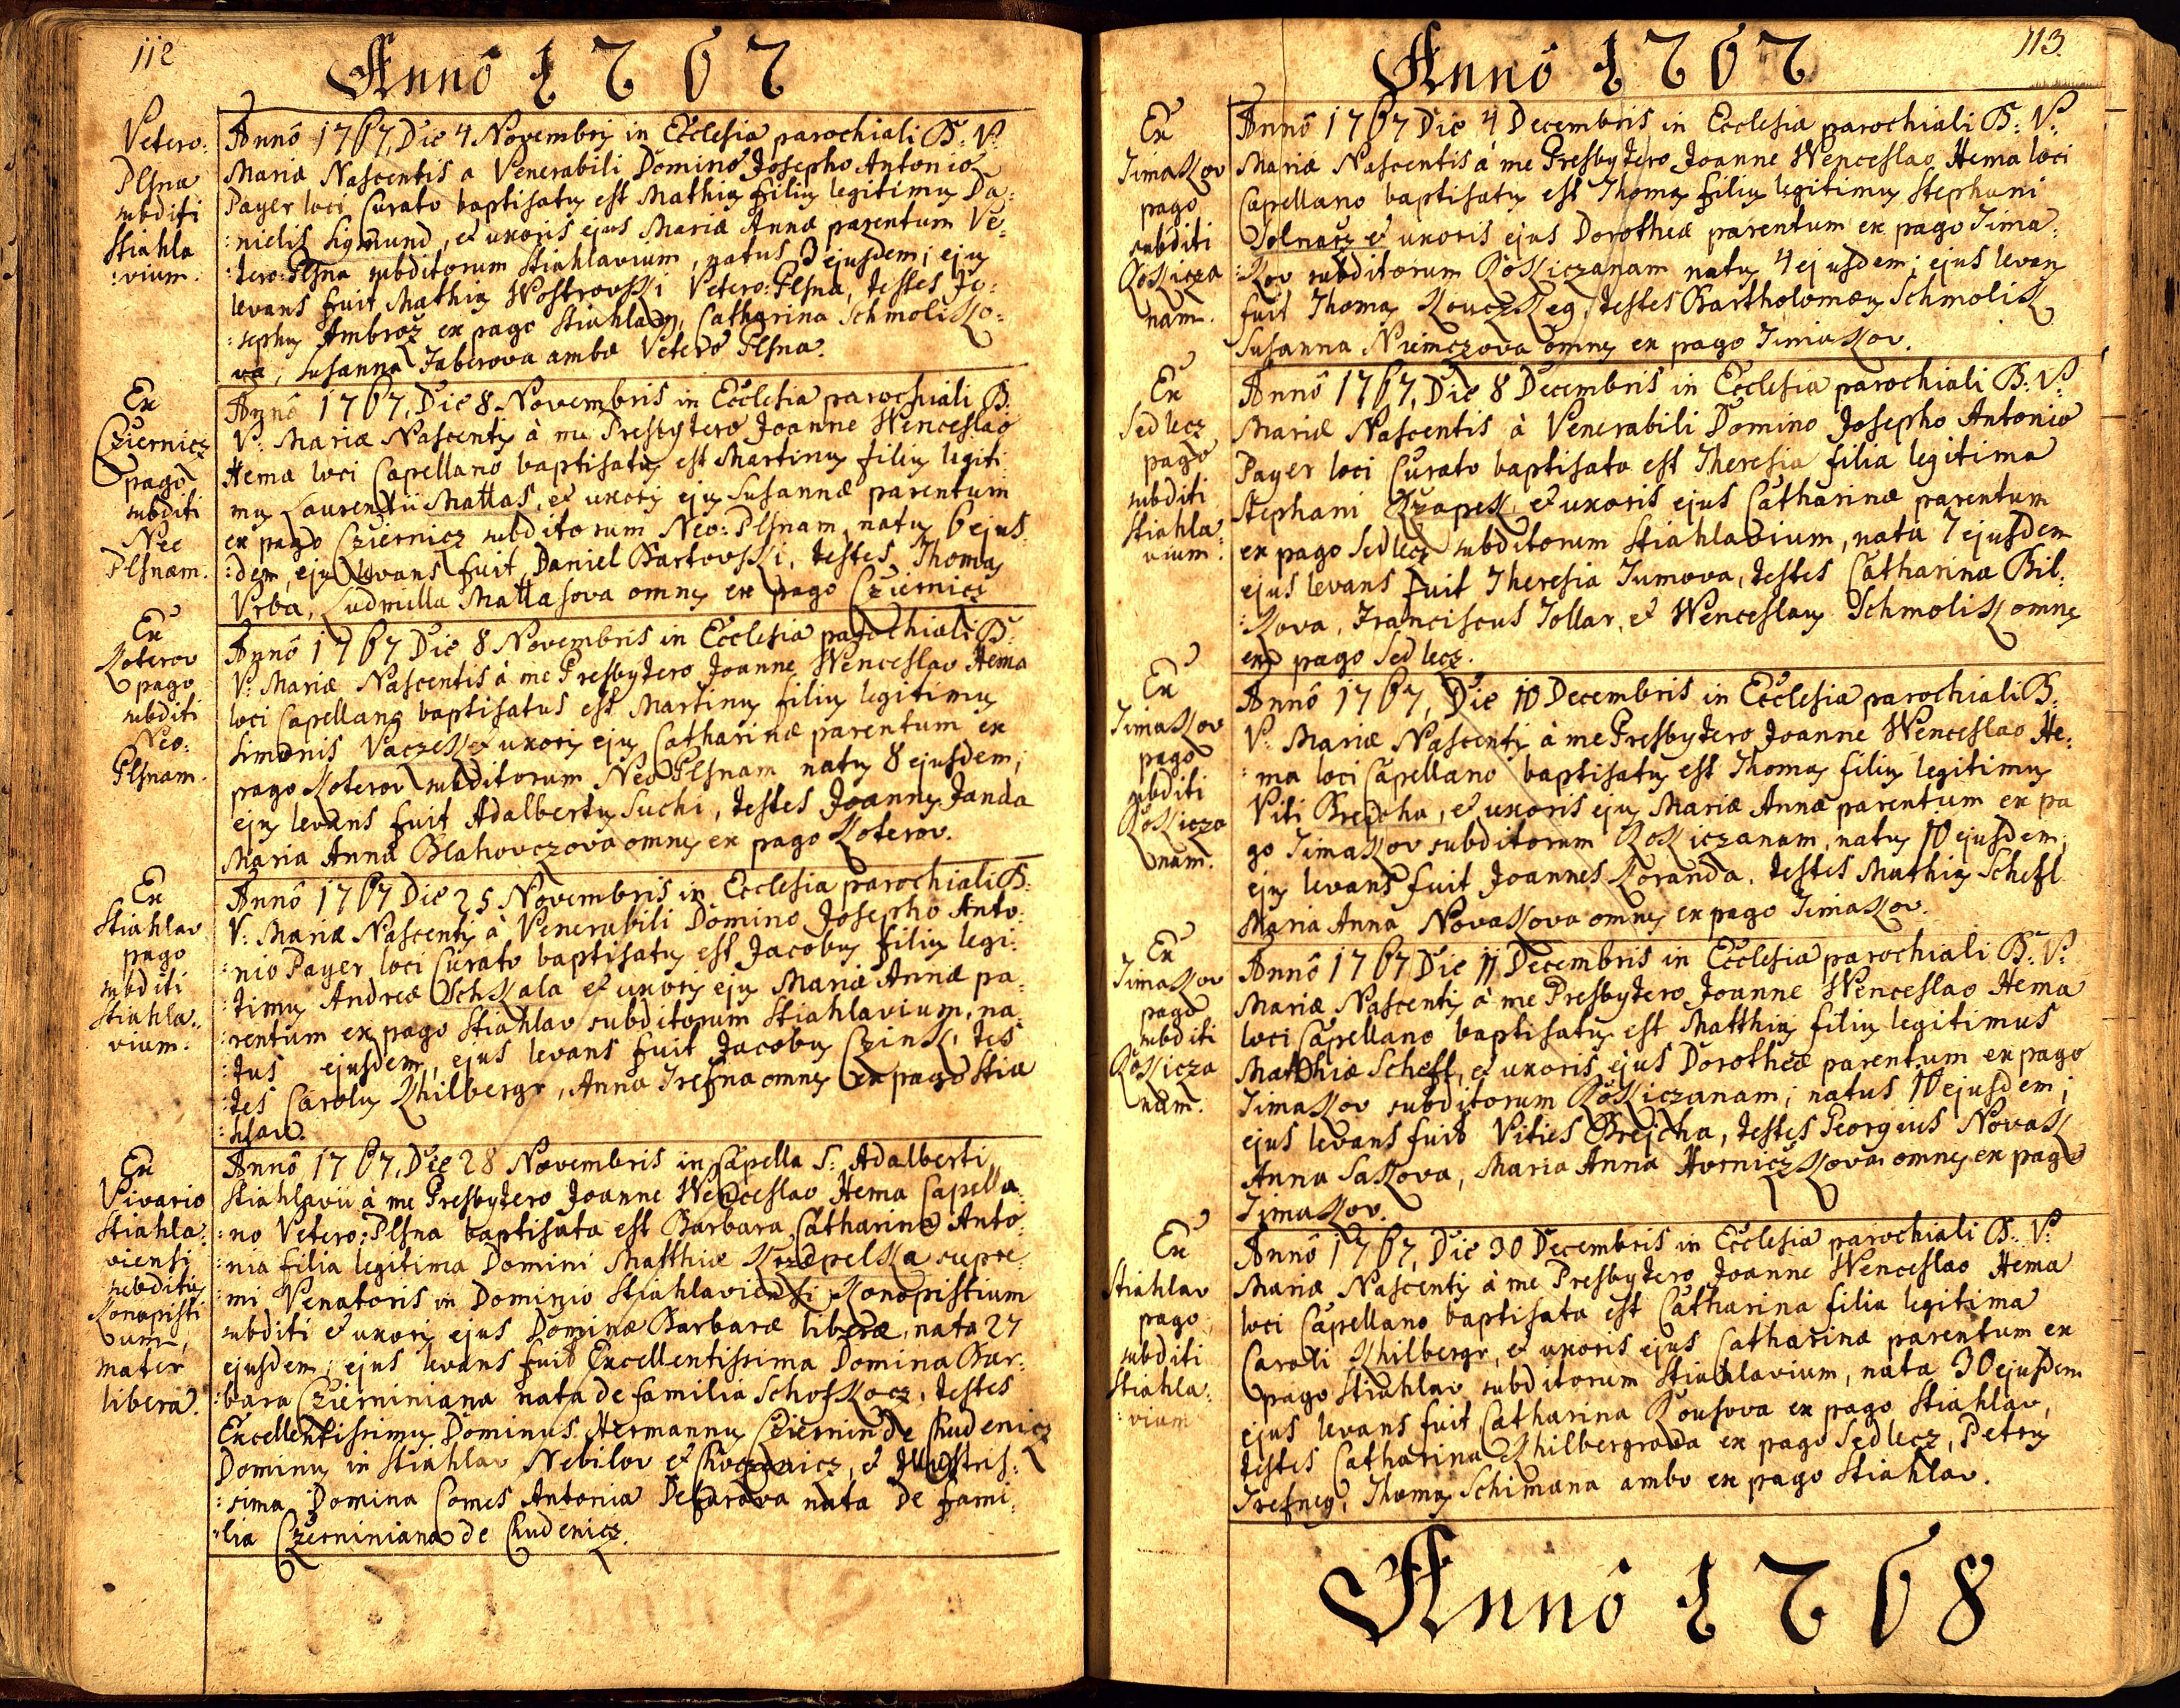 112
Annô 1767
Vetero:
Plsna
subditi
Stiahla
:vium.
Annô 1767, Die 4 Novembris in Ecclesia parochiali B: V:
Mariæ Nascentis a Venerabili Domino Josepho Antonio
Payer loci Curato baptisatus est Mathias filius legitimus Da:
:nielis Sigmund, et uxoris ejus Mariæ Annæ parentum Ve:
:tero:Plsna subditorum Stiahlavium, natus 3 ejusdem; ejus
levans fuit Mathias Wostrovski Vetero:Plsna, testes Jo:
:sephus Ambroż ex pago Stiahlav, Catharina Schmoliko:
va, Susanna Taberova ambæ Vetero Plsna.
Ex
Cziernicz
pago
subditi
Neo
Plsnam.
Annô 1767, Die 8 Novembris in Ecclesia parochiali B:
V: Mariæ Nascentis à me Presbytero Joanne Wenceslao
Hema loci Capellano baptisatus est Martinus filius legiti
mus Laurentii Mattas, et uxoris ejus Susannæ parentum
ex pago Cziernicz subditorum Neo:Plsnam, natus 6 ejus:
:dem, ejus levans fuit Daniel Bartovski, testes Thomas
Vrba, Ludmilla Mattasova omnes ex pago Cziernicz
Ex
Koterov
pago
subditi
Neo:
Plsnam.
Annô 1767 Die 8 Novembris in Ecclesia parochiali B:
V: Mariæ Nascentis à me Presbytero Joanne Wenceslao Hema
loci Capellano baptisatus est Martinus filius legitimus
Simonis Vaczek et uxoris ejus Catharinæ parentum ex
pago Koterov subditorum Neo Plsnam natus 8 ejusdem;
ejus levans fuit Adalbertus Suchi, testes Joannes Janda
Maria Anna Blahovczova omnes ex pago Koterov.
Ex
Stiahlav
pago
subditi
Stiahla:
vium.
Annô 1767 Die 25 Novembris in Ecclesia parochiali B:
V: Mariæ Nascentis à Venerabili Domino Josepho Anto:
:nio Payer loci Curato baptisatus est Jacobus filius legi:
:timus Andreæ Schkala et uxoris ejus Mariæ Annæ pa:
:rentum ex pago Stiahlav subditorum Stiahlavium, na:
:tus ejusdem, ejus levans fuit Jacobus Czink, tes
:tes Carolus Khilbergr, Anna Trefna omnes ex pago Stia
:hlav.
Ex
Vivario
Stiahla:
viensi
subditus
Konopisti
um,
mater
libera.
Annô 1767, Die 28 Novembris in Capella S: Adalberti
Stiahlavii à me Presbytero Joanne Wenceslao Hema Capella:
:no Vetero:Plsna baptisata est Barbara Catharina Anto:
:nia filia legitima Domini Matthiæ Krzepelka supre:
:mi Venatoris in Dominio Stiahlaviensi Konopistium
subditi et uxoris ejus Dominæ Barbaræ liberæ, nata 27
ejusdem; ejus levans fuit Excellentissima Domina Bar:
:bara Czierniniana nata de familia Schofkocz, testes
Excellentissimus Dominus Hermannus Cziernin de Chudenicz
Dominus in Stiahlav Nebilov et Chocenicz, et Illustris:
:sima Domina Comes Antonia nata De fami:
:lia Czerniniana de Chudenicz.
113
Annô 1767
Ex
Timakov
pago
subditi
Rokicza
nam.
Annô 1767 Die 4 Decembris in Ecclesia parochiali B: V:
Mariæ Nascentis à me Presbytero Joanne Wenceslao Hema loci
Capellano baptisatus est Thomas filius legitimus Stephani
Solnarz et uxoris ejus Dorotheæ parentum ex pago Tima:
:kov subditorum Rokiczanam natus 4 ejusdem; ejus levans
fuit Thomas Kouczkeg, testes Bartholomæus Schmolik
Susanna Niemczova omnes ex pago Timakov.
Ex
Sedlecz
pago
subditi
Stiahla:
vium.
Annô 1767, Die 8 Decembris in Ecclesia parochiali B: V:
Mariæ Nascentis à Venerabili Domino Josepho Antonio
Payer loci Curato baptisata est Theresia filia legitima
Stephani Czapek, et uxoris ejus Catharinæ parentum
ex pago Sedlecz subditorum Stiahlavium, nata 7 ejusdem
ejus levans fuit Theresia Tumova, testes Catharina Bil:
:kova, Franciscus Tollar, et Wenceslaus Schmolik omnes
ex pago Sedlecz.
Ex
Timakov
pago
subditi
Rokicza
nam.
Annô 1767, Die 10 Decembris in Ecclesia parochiali B:
V: Mariæ Nascentis à me Presbytero Joanne Wenceslao He:
:ma loci Capellano baptisatus est Thomas filius legitimus
Viti Brejcha, et uxoris ejus Mariæ Annæ parentum ex pa
go Timakov subditorum Rokiczanam, natus 10 ejusdem;
ejus levans fuit Joannes Koranda, testes Mathias Schefl
Maria Anna Novakova omnes ex pago Timakov.
Ex
Timakov
pago
subditi
Rokicza
nam.
Annô 1767 Die 11 Decembris in Ecclesia parochiali B: V:
Mariæ Nascentis à me Presbytero Joanne Wenceslao Hema
loci Capellano baptisatus est Matthias filius legitimus
Matthiæ Schefl, et uxoris ejus Dorotheæ parentum ex pago
Timakov subditorum Rokiczanam; natus 10 ejusdem;
ejus levans fuit Vities Brejcha, testes Georgius Novak
Anna Sakova, Maria Anna Horniczkova omnes ex pago
Timakov.
Ex
Stiahlav
pago
subditi
Stiahla:
:vium
Annô 1767, Die 30 Decembris in Ecclesia parochiali B: V:
Mariæ Nascentis à me Presbytero Joanne Wenceslao Hema
loci Capellano baptisata est Catharina filia legitima
Caroli Khilbergr, et uxoris ejus Catharinæ parentum ex
pago Stiahlav subditorum Stiahlavium, nata 30 ejusdem
ejus levans fuit Catharina Rousova ex pago Stiahlav,
testes Catharina Khilbergrova ex pago Sedlecz, Petrus
Trefneg, Thomas Schimana ambo ex pago Stiahlav.
Annô 1768